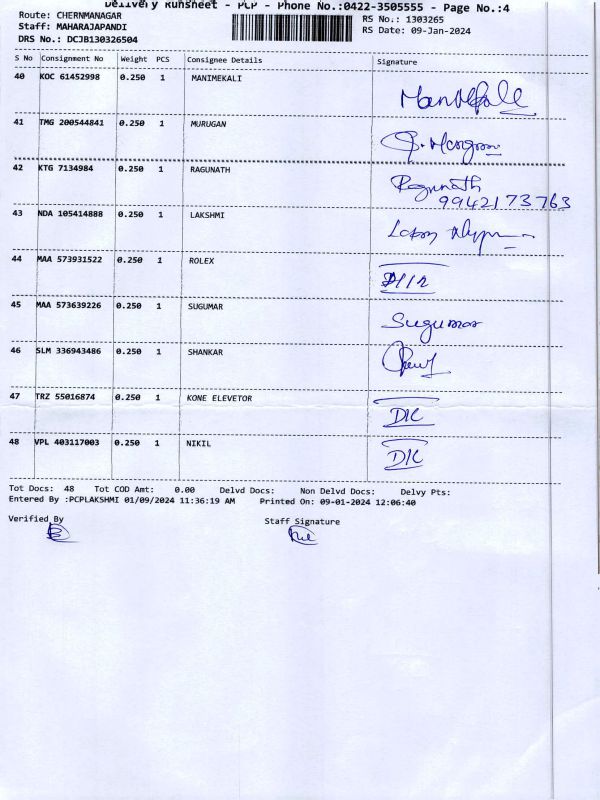 Delivery Runsheet - PCP - Phone No.:0422-3505555 - Page No.:4
Route: CHERNMANAGAR
RS No.: 1303265
Staff: MAHARAJAPANDI
RS Date: 09-Jan-2024
DRS No.: DCJB130326504
S No Consignment No Weight PCS Consignee Details Signature
40 KOC 61452998 0.250 1 MANIMEKALI
41 TMG 200544841 0.250 1 MURUGAN
42 KTG 7134984 0.250 1 RAGUNATH Ragunath
9942173763
43 NDA 105414888 0.250 1 LAKSHMI
44 MAA 573931522 0.250 1 ROLEX
45 MAA 573639226 0.250 1 SUGUMAR Sugumar
46 SLM 336943486 0.250 1 SHANKAR
47 TRZ 55016874 0.250 1 KONE ELEVETOR DK
48 VPL 403117003 0.250 1 NIKIL DK
Tot Docs: 48 Tot COD Amt: 0.00 Delvd Docs: Non Delvd Docs: Delvy Pts:
Entered By :PCPLAKSHMI 01/09/2024 11:36:19 AM Printed On: 09-01-2024 12:06:40
Verified By Staff Signature